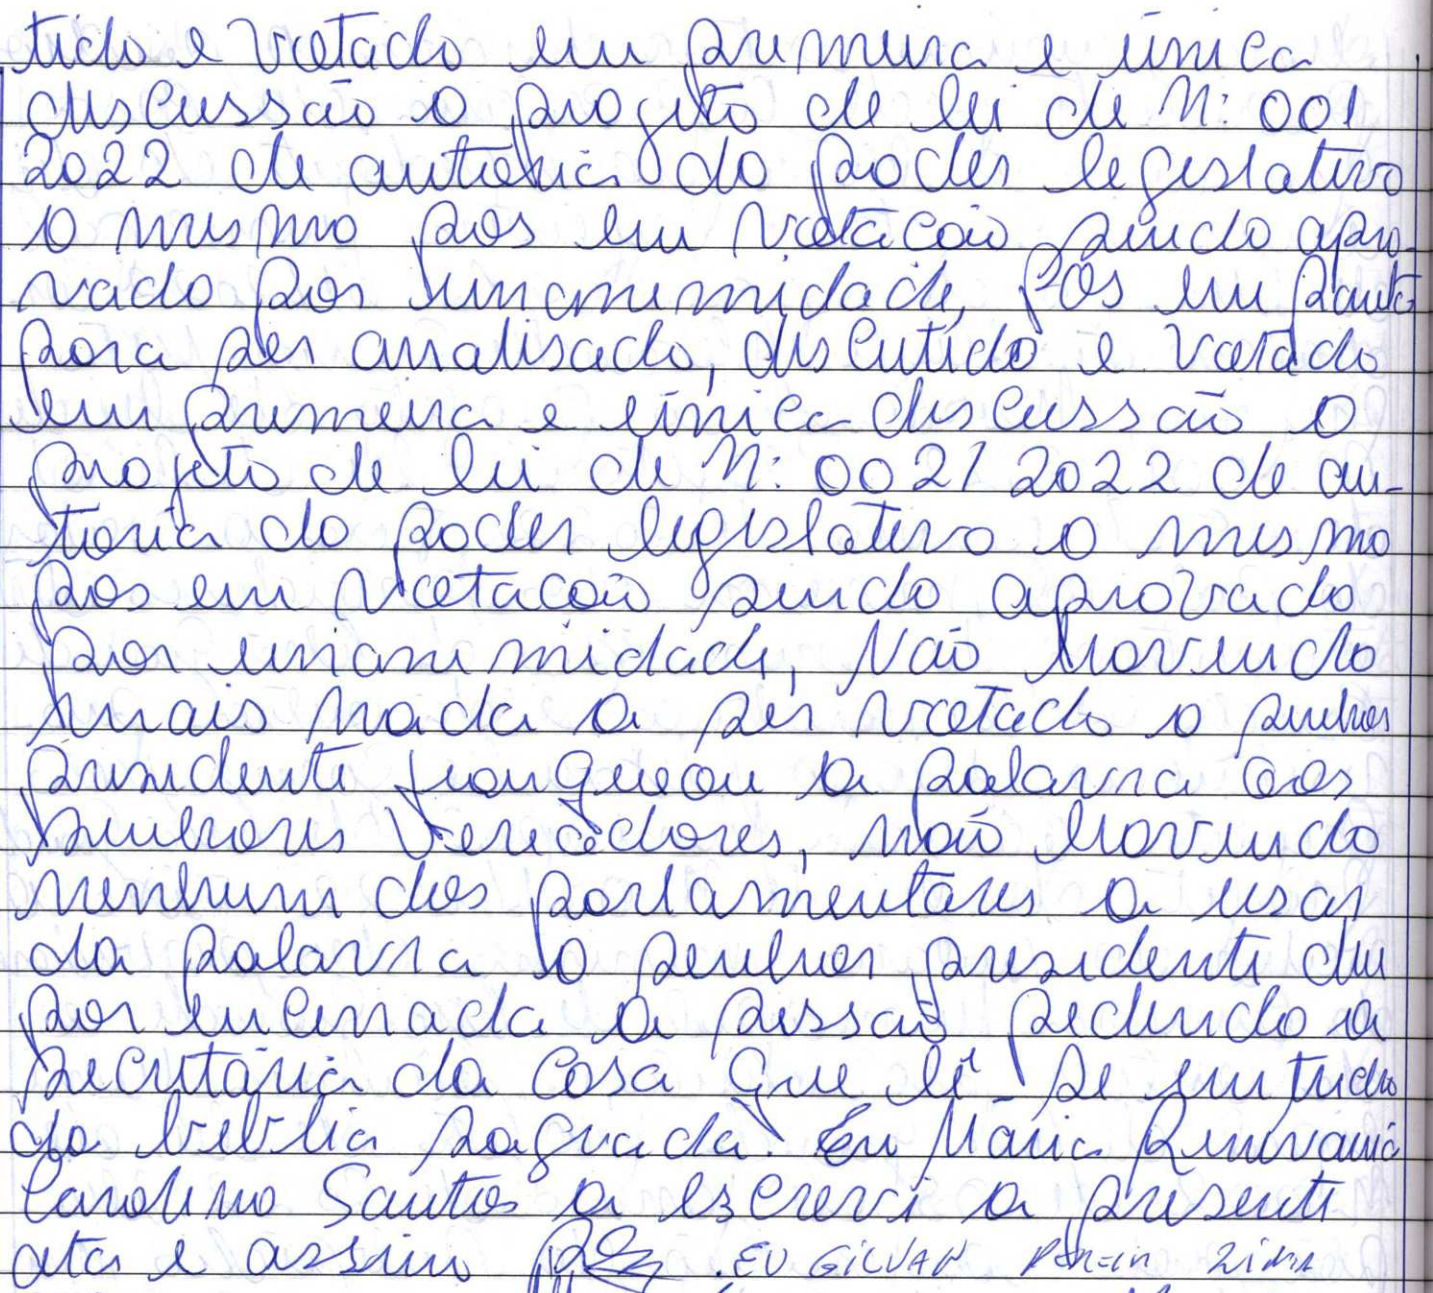 tido e votado em primeira e única
discussão o projeto de lei de N: 001
2022 de autoria do poder legislativo
o mesmo pos em votação sendo apro-
vado por unanimidade, Pos em pauta
para ser analisado, discutido e votado
em primeira e única discussão o
projeto de lei de N: 002/2022 de au-
toria do poder legislativo o mesmo
pos em votação sendo aprovado
por unanimidade, Não havendo
mais nada a ser votado o senhor
presidente franqueou a palavra aos
senhores Vereadores, não havendo
nenhum dos parlamentares a usar
da palavra o senhor presidente deu
por encerrada a sessão pedindo a
secretária da casa que lê-se um trecho
da bíblia sagrada. Eu Maria
Carolino Santos a escrevi a presente
ata e assino EU GILVAN PEREIRA LIMA